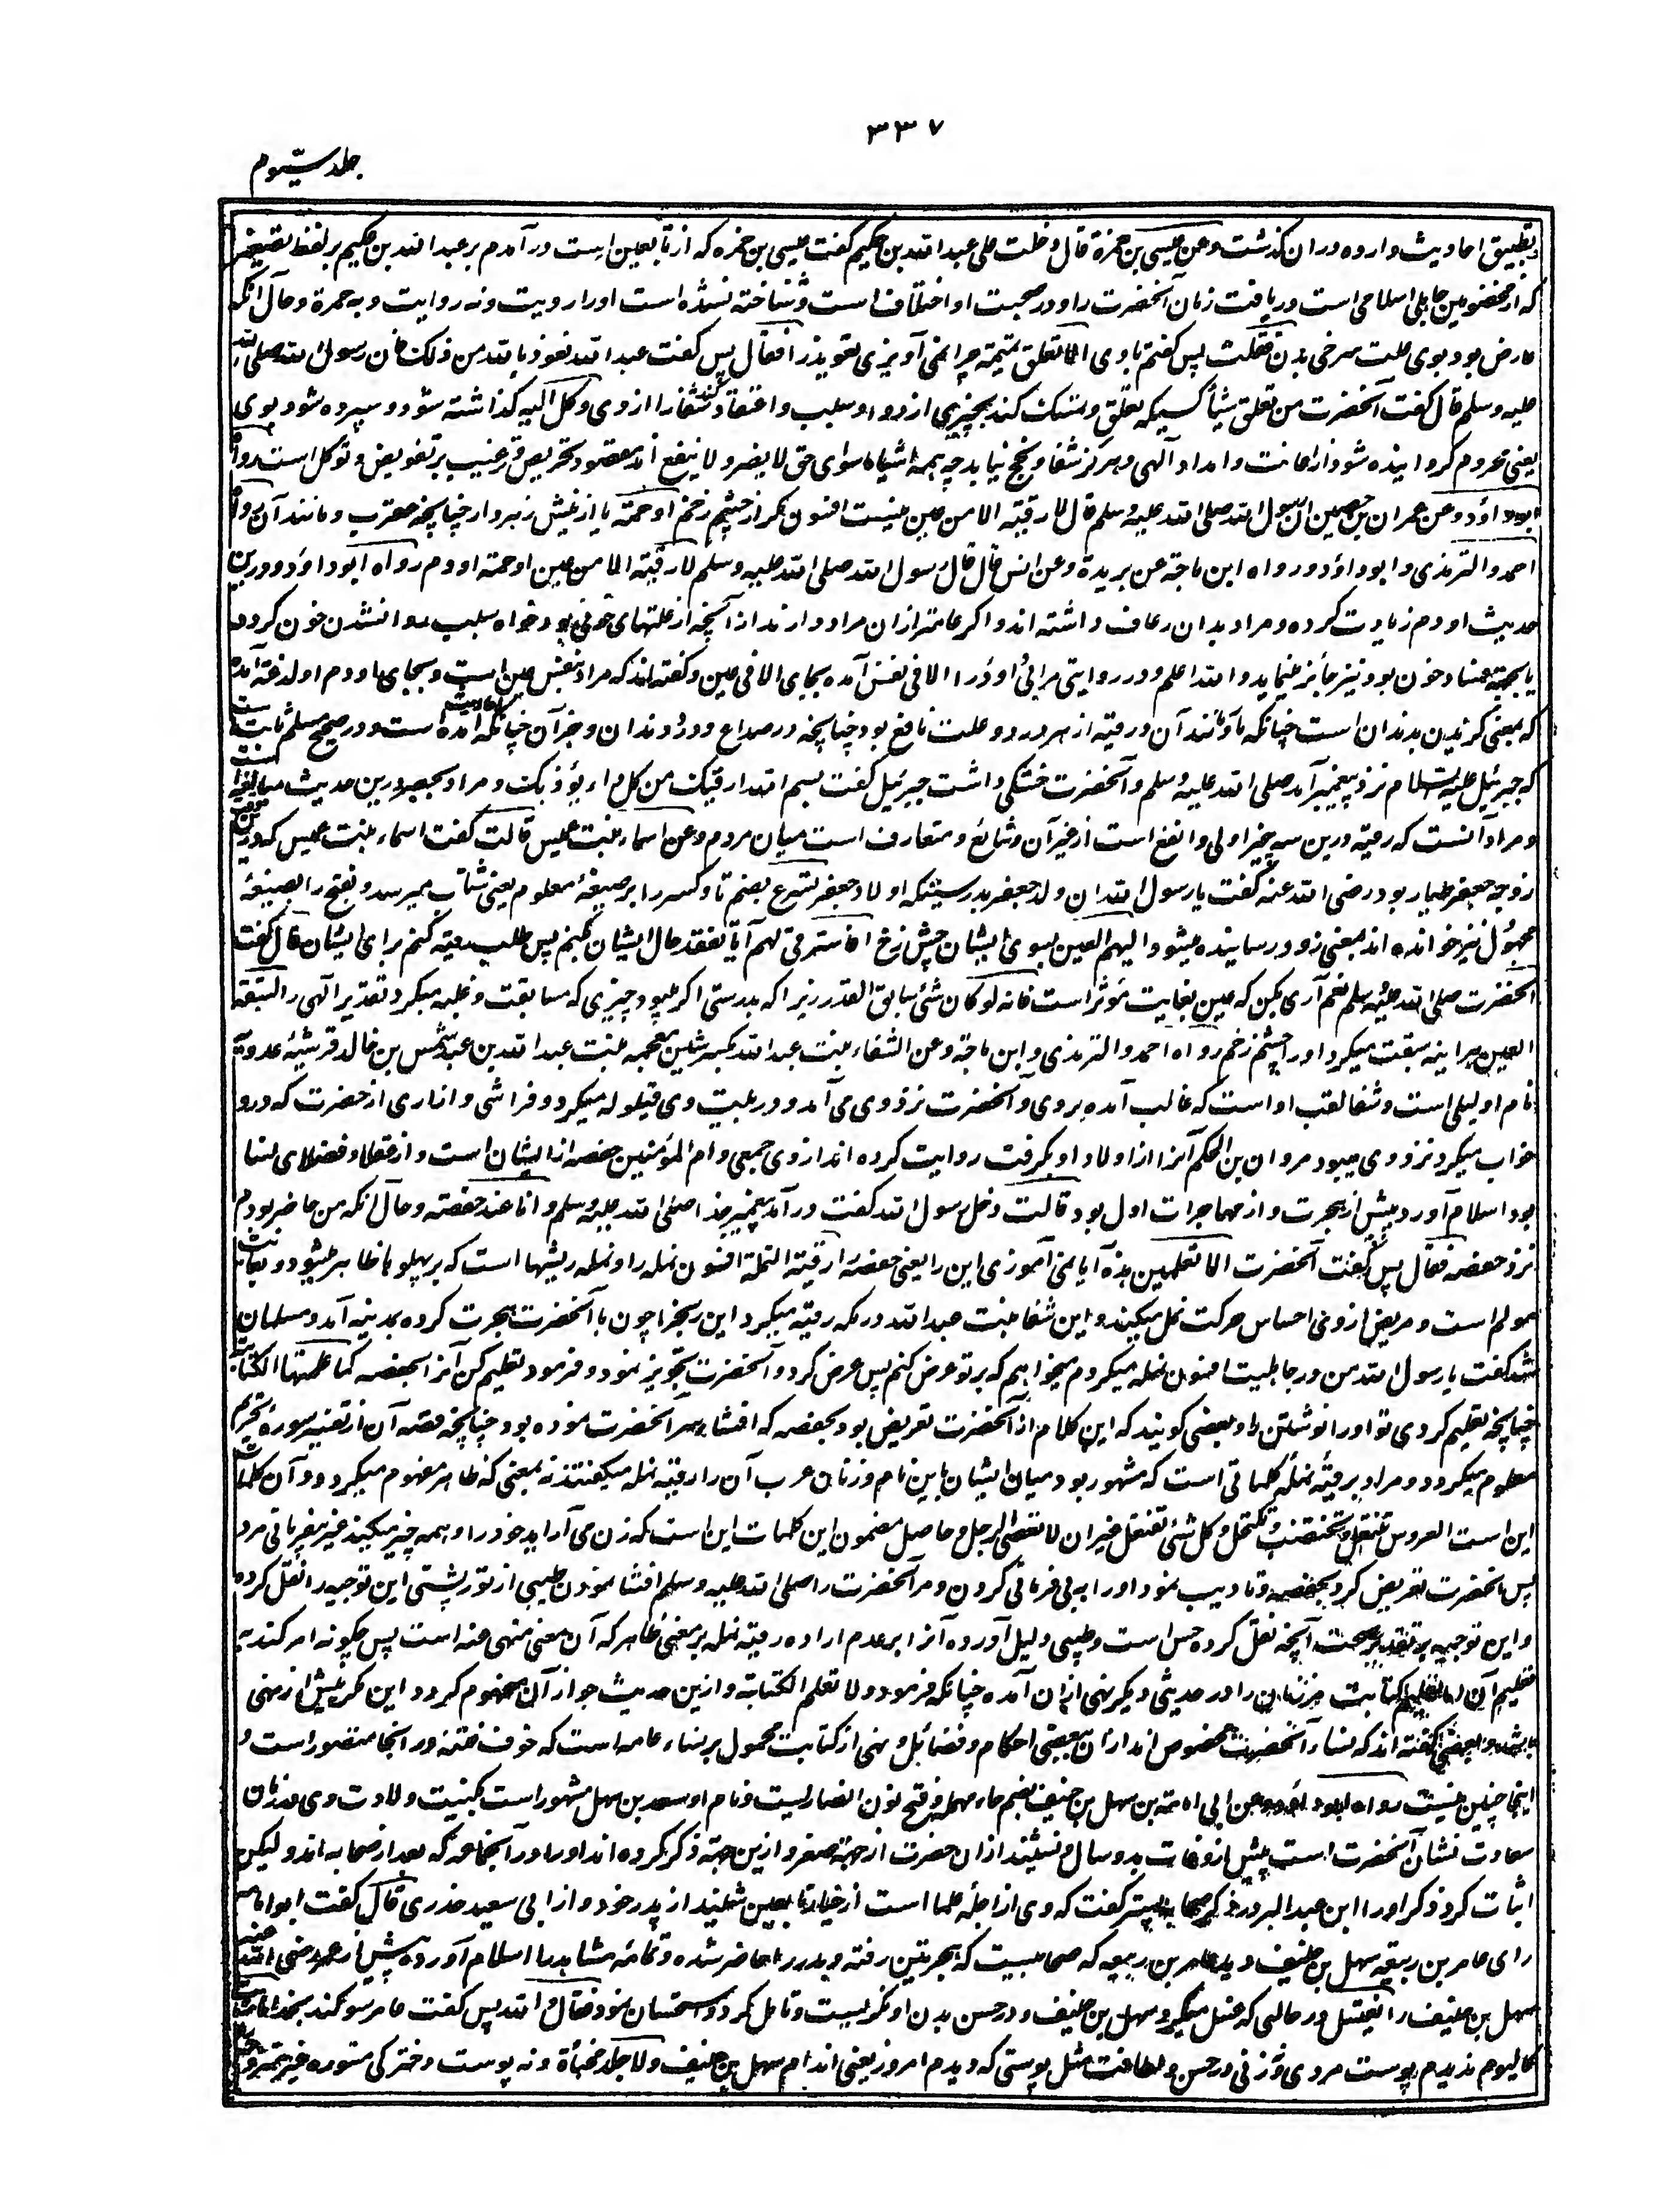 ۳۳۷
جلد سیوم
تطبیق احادیث وارده دران گذشت وعن عیسی بن حمزة قال دخلت علی عبد الله بن حکیم گفت عیسی بن حمزه که از تابعین است در آمدم بر عبد الله بن حکیم بر لفظ تصغیر
که از مخضرمین جاهلی اسلامی است دریافت زمان آنحضرت را و در صحبت او اختلاف است و شناخته نشده است او را رویت و نه روایت وبه حمرة و حال آنکه
عارض بود بوی علت سرخی بدن فقلت پس گفتم با وی الا تعلق تمیمة چرا نمی آویزی تعویذ را فقال پس گفت عبد الله نعوذ بالله من ذلک فان رسول الله صلی الله
علیه وسلم قال گفت آنحضرت من تعلق شیأ کسیکه تعلق و تمسک کند بچیزی از دوا و سلب و اعتقاد کند شفا را از وی وکل الیه گذاشته شود و سپرده شود بوی
یعنی محروم گردانیده شود از اعانت و امداد آلهی و هرگز شفا و نجح نیابد چه همه اشیاء سوای حق لا یضر و لا ینفع اند مقصود تحریص و ترغیب بر تفویض و توکل است رواه
ابو داؤد وعن عمران بن حصین ان رسول الله صلی الله علیه وسلم قال لا رقیة الا من عین نیست افسون مگر از چشم زخم او حمة یا از نیش زهردار چنانچه عقرب و مانند آن رواه
احمد والترمذی وابو داؤد ورواه ابن ماجة عن بریدة وعن انس قال قال رسول الله صلی الله علیه وسلم لا رقیة الا من عین او حمة او دم رواه ابو داؤد و درین
حدیث او دم زیادت کرده و مراد بدان رعاف داشته اند و اگر عامتر ازان مراد دارند از آنچه از علتهای خونی بود خواه بسلب روانشدن خون گردد
یا بجهة فساد خون بود نیز جائز مینماید و الله اعلم و در روایتی مرابی داؤد را الا فی نفس آمده بجای الا فی عین و گفته اند که مراد بنفس عین است و بجای او دم او لدغة آمده
که بمعنی گزیدن بدندان است چنانکه مار و مانند آن و رقیه از هر درد و علت نافع بود چنانچه در صداع و درد دندان و جز آن چنانکه در احادیث آمده است و در صحیح مسلم ثابت است
که جبرئیل علیه السلام نزد پیغمبر آمد صلی الله علیه وسلم و آنحضرت خستگی داشت جبرئیل گفت بسم الله ارقیک من کل داء یؤذیک و مراد بحصر درین حدیث مبالغه است
و مراد آنست که رقیه درین سه چیز اولی و انفع است از غیر آن و شائع و متعارف است میان مردم وعن اسماء بنت عمیس قالت گفت اسماء بنت عمیس که
زوجه جعفر طیار بود رضی الله عنه گفت یا رسول الله ان ولد جعفر بدرستیکه اولاد جعفر تسرع بضم تا و کسر را بر صیغهٔ معلوم یعنی شتاب میرسد و بفتح را بصیغهٔ
مجهول نیز خوانده اند بمعنی زود رسانیده میشود الیهم العین بسوی ایشان چشم زخ افاسترقی لهم آیا تفقد حال ایشان بکنم پس طلب رقیه کنم برای ایشان قال گفت
آنحضرت صلی الله علیه وسلم نعم آری بکن که عین بغایت مؤثر است فانه لو کان شئ سابق القدر زیرا که بدرستی اگر میبود چیزی که مسابقت و غلبه میکرد تقدیر آلهی را لسبقته
العین هر اینه سبقت میکرد او را چشم زخم رواه احمد والترمذی وابن ماجة وعن الشفاء بنت عبد الله بکسر شین معجمه بنت عبد الله بن عبد شمس بن خالد قرشیهٔ عدویه
نام او لیلی است و شفا لقب او است که غالب آمده بر وی و آنحضرت نزد وی می آمد و در بیت وی قیلوله میکرد و فراشی و ازاری از حضرت که در و
خواب میکرد نزد وی میبود مروان بن الحکم آنرا از اولاد او بگرفت روایت کرده اند از وی جمعی و ام المؤمنین حفصه از ایشان است و از عقلا و فضلای نسا
بود اسلام آورد پیش از هجرت و از مهاجرات اول بود قالت دخل رسول الله گفت در آمد پیغمبر خدا صلی الله علیه وسلم وانا عند حفصة و حال آنکه من حاضر بودم
نزد حفصه فقال پس گفت آنحضرت الا تعلمین هذه آیا نمی آموزی این را یعنی حفصه را رقیة النملة افسون نمله را و نمله ریشها است که بر پهلوها ظاهر میشود و بغایت
مولم است و مریض از وی احساس حرکت نمل میکند و این شفا بنت عبد الله در مکه رقیه میکرد این رنج را چون با آنحضرت هجرت کرده بمدینه آمد و مسلمان
شد گفت یا رسول الله من در جاهلیت افسون نمله میکردم میخواهم که بر تو عرض کنم پس عرض کرد و آنحضرت تجویز نمود و فرمود تعلیم کن آنرا بحفصه کما علمتها الکتابة
چنانچه تعلیم کردی تو او را نوشتن را و بعضی گویند که این کلام از آنحضرت تعریض بود بحفصه که افشاء سر آنحضرت نموده بود چنانچه قصه آن از تفسیر سورهٔ تحریم
معلوم میگردد و مراد برقیهٔ نمله کلماتی است که مشهور بود میان ایشان باین نام و زنان عرب آن را رقیه نمله میگفتند نه بمعنی که ظاهر مفهوم میگردد و آن کلمات
این است العروس تنتعل و تختضب و تکتحل و کل شئ تفتعل غیر ان لا تعصی الرجل و حاصل مضمون این کلمات این است که زن می آراید خود را و همه چیز میکند غیر بیفرمانی مرد
پس آنحضرت تعریض کرد بحفصه و تادیب نمود او را به بی فرمانی کردن و مر آنحضرت را صلی الله علیه وسلم افشا نمودن طیبی از تورپشتی این توجیه را نقل کرده
و این توجیه بر تقدیر صحت آنچه نقل کرده حسن است و طیبی دلیل آورده آنرا بر عدم اراده رقیه نمله بر معنی ظاهر که آن معنی منهی عنه است پس چگونه امر کند به
تعلیم آن اما تعلیم کتابت مر زنان را در حدیثی دیگر نهی ازان آمده چنانکه فرمود ولا تعلم الکتابة و ازین حدیث جواز آن مفهوم گردد این مگر پیش از نهی
باشد و بعضی گفته اند که نساء آنحضرت مخصوص اند ازان ببعضی احکام و فضائل و نهی از کتابت محمول بر نساء عامه است که خوف فتنه در انجا متصور است و
اینجا چنین نیست رواه ابو داؤد وعن ابی امامة بن سهل بن حنیف بضم حاء مهمله و فتح نون انصاریست و نام او سعد بن سهل مشهور است بکنیت ولادت وی در زمان
سعادت نشان آنحضرت است پیش از وفات بدو سال و نشنید ازان حضرت از جهة صغر و ازین جهة ذکر کرده اند او را در آنجماعه که بعد از صحابه اند ولیکن
اثبات کرد ذکر او را ابن عبد البر در ذکر صحابه پستر گفت که وی از اجلهٔ علما است از خیار تابعین شنید از پدر خود و از ابی سعید خدری قال گفت ابو امامه
رای عامر بن ربیعه سهل بن حنیف دید عامر بن ربیعه که صحابیست که هجرتین رفته و بدر را حاضر شده و تمامهٔ مشاهد را اسلام آورده پیش از عمر رضی الله عنه
سهل بن حنیف را یغتسل در حالی که غسل میکرد سهل بن حنیف و در حسن بدن او نگریست و تامل کرد و استحسان نمود فقال والله پس گفت عامر سوگند بخدا ما رایت
کالیوم ندیدم پوست مردی و زنی در حسن و لطافت مثل پوستی که دیدم امروز یعنی اندام سهل بن حنیف ولا جلد مخبأة و نه پوست دخترکی مستوره غیر